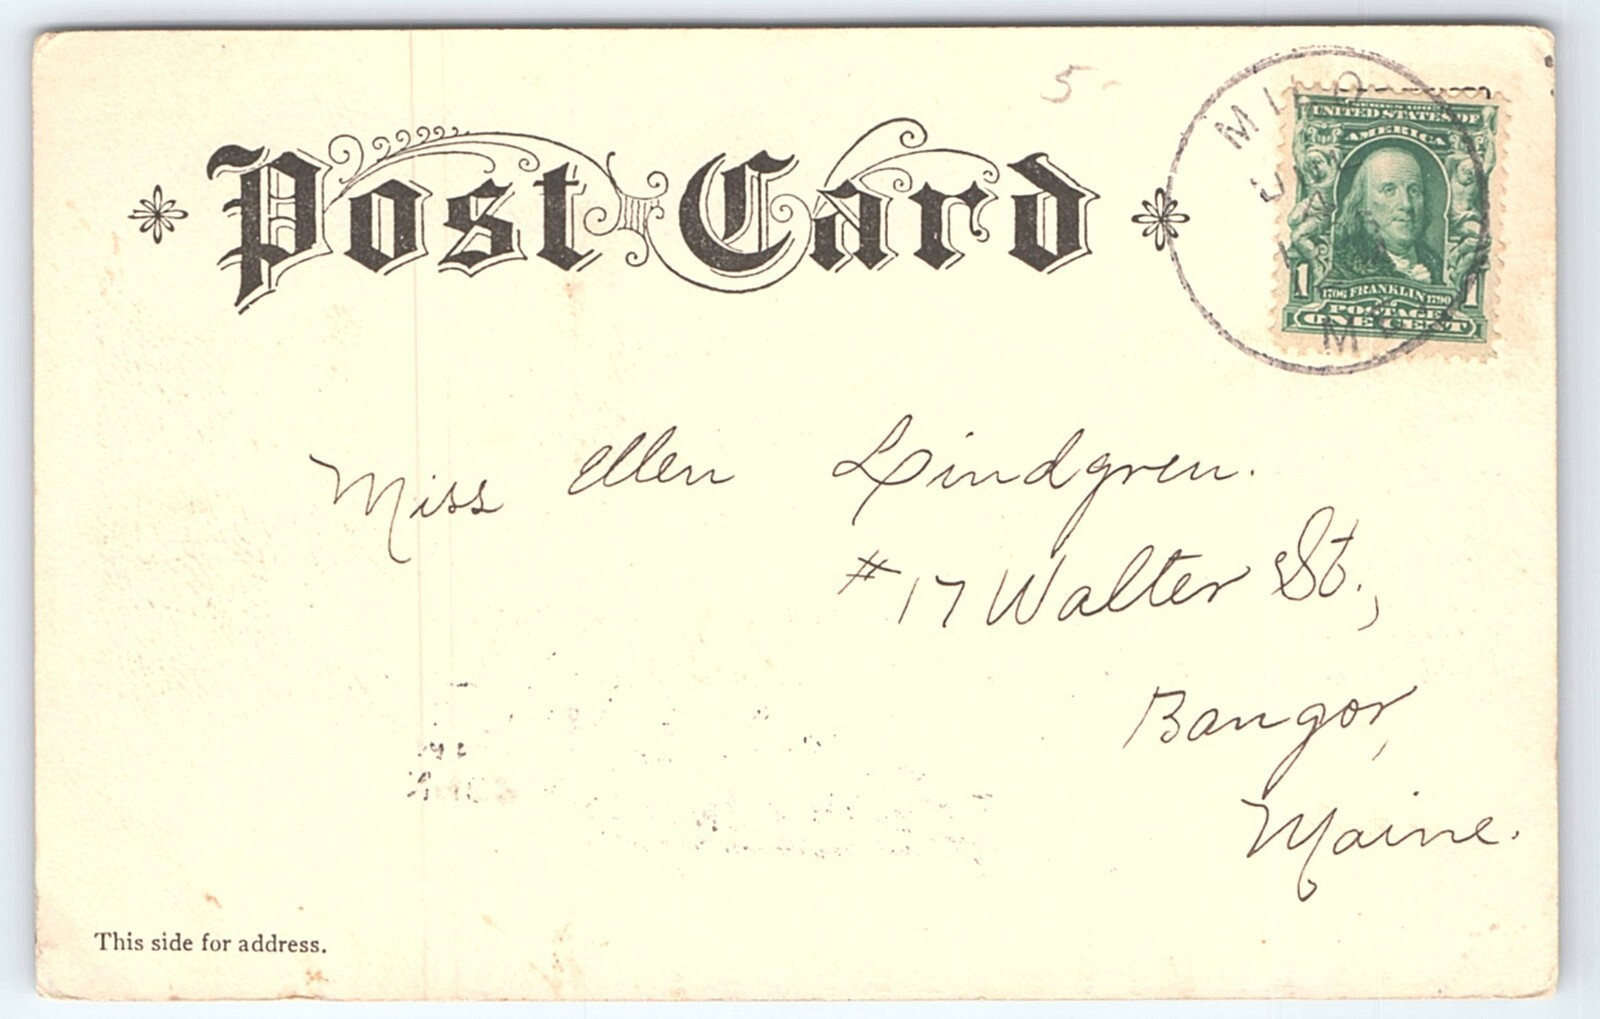 5-
Post Card
MILO
ME.
UNITED STATES OF
AMERICA
1 1
1706 FRANKLIN 1790
POSTAGE
ONE CENT
Miss Ellen Lindgren.
#17 Walter St.,
Bangor,
Maine.
This side for address.